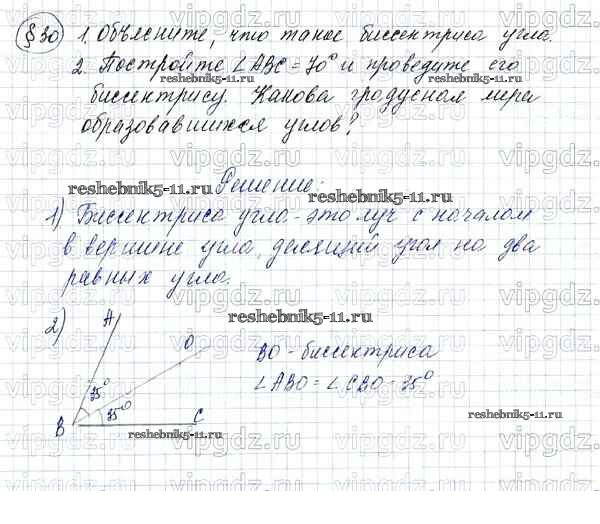 §30 1. Объясните, что такое биссектриса угла.
2. Постройте ∠ABC = 70° и проведите его
reshebnik5-11.ru
биссектрису. Какова градусная мера
образовавшихся углов?
Решение:
reshebnik5-11.ru
reshebnik5-11.ru
1) Биссектриса угла - это луч с началом
в вершине угла, делящий угол на два
равных угла.
reshebnik5-11.ru
2) A
O
BO - биссектриса
∠ABO = ∠CBO - 35°
35°
35°
B
C
reshebnik5-11.ru
reshebnik5-11.ru
vipgdz.ru